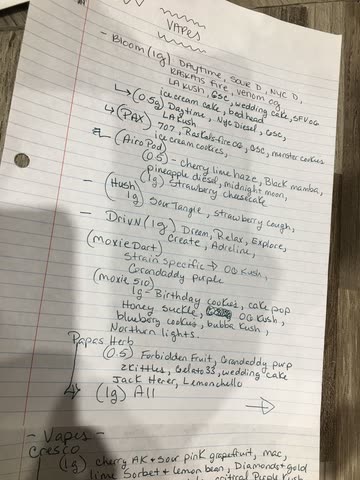 VAPES
- Bloom (1g) Daytime, Sour D, NYC D,
RAskals fire, venom og
LA Kush, GSC, wedding cake, SFV OG
ice cream cake, bedhead
↳ (0.5g) Daytime, NYC Diesel, GSC,
LA Kush
↳ (PAX) 707, Raskals fire OG, GSC, monster cookies
ice cream cookies,
- (Airo Pod)
(0.5) - cherry lime haze, Black mamba,
Pineapple diesel, midnight moon,
(1g) Strawberry cheesecake
- (Hush)
1g) Sour Tangie, strawberry cough,
- Drivn (1g) Dream, Relax, Explore,
Create, Adreline,
(moxie Dart)
Strain Specific → OG Kush,
Grandaddy purple
(moxie 510)
1g - Birthday cookies, cake pop
Honey suckle, OG Kush,
blueberry cookies, bubba Kush,
Northern lights.
Papas Herb
(0.5) Forbidden Fruit, Grandaddy purp
zkittles, Gelato 33, wedding cake
Jack Herer, Lemonchello
(1g) All
- Vapes -
Cresco
(1g) cherry AK + Sour pink grapefruit, mac,
lime Sorbet + lemon bean, Diamonds + gold
critical Purple Kush